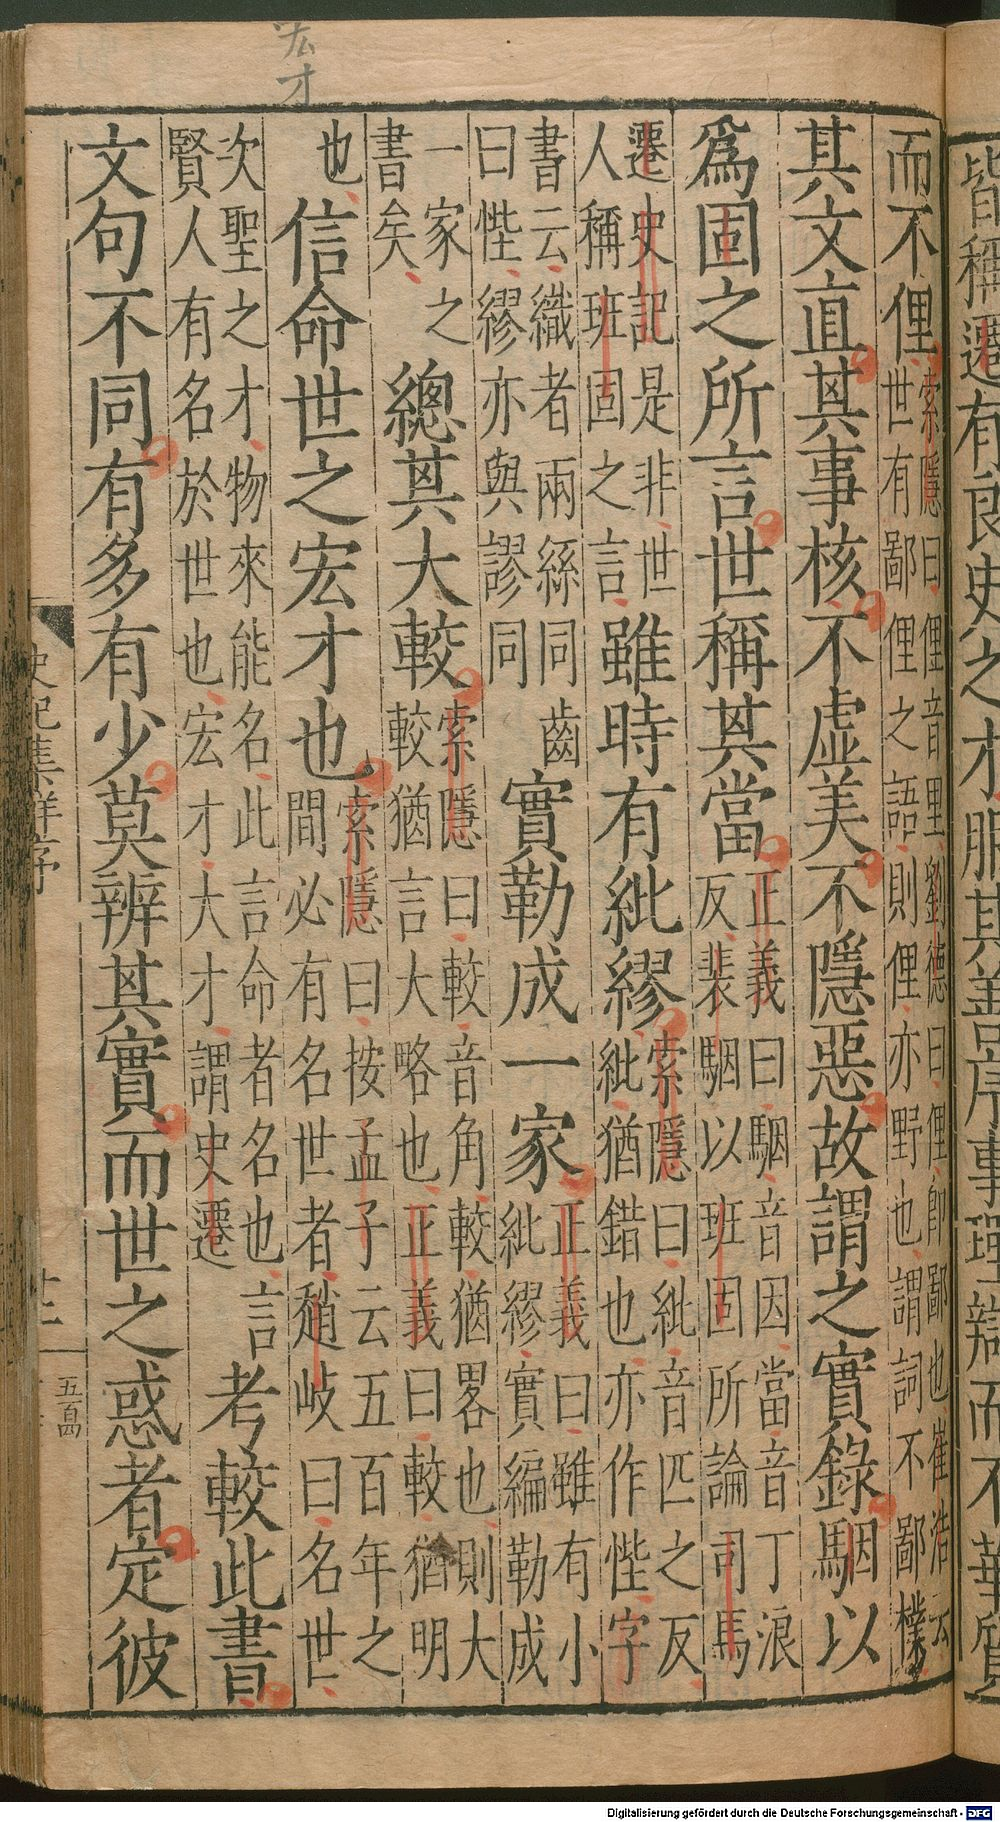 皆稱遷有良史之才服其善序事理辯而不華質
宏才
而不俚索隱曰俚音里劉德曰俚即鄙也崔浩云世有鄙俚之語則俚亦野也謂詞不鄙樸
其文直其事核不虛美不隱惡故謂之實錄駰以
爲固之所言世稱其當正義曰駰音因當音丁浪反裴駰以班固所論司馬
遷史記是非世人稱班固之言雖時有紕繆索隱曰紕音匹之反紕猶錯也亦作悂字
書云織者兩絲同齒曰悂繆亦與謬同實勒成一家正義曰雖有小紕繆實編勒成
一家之書矣總其大較索隱曰較音角較猶畧也則大較猶言大略也正義曰較猶明
也信命世之宏才也索隱曰按孟子云五百年之間必有名世者趙岐曰名世
次聖之才物來能名此言命者名也言賢人有名於世也宏才大才謂史遷考較此書
文句不同有多有少莫辨其實而世之惑者定彼
史記集解序
五百四
Digitalisierung gefördert durch die Deutsche Forschungsgemeinschaft - DFG